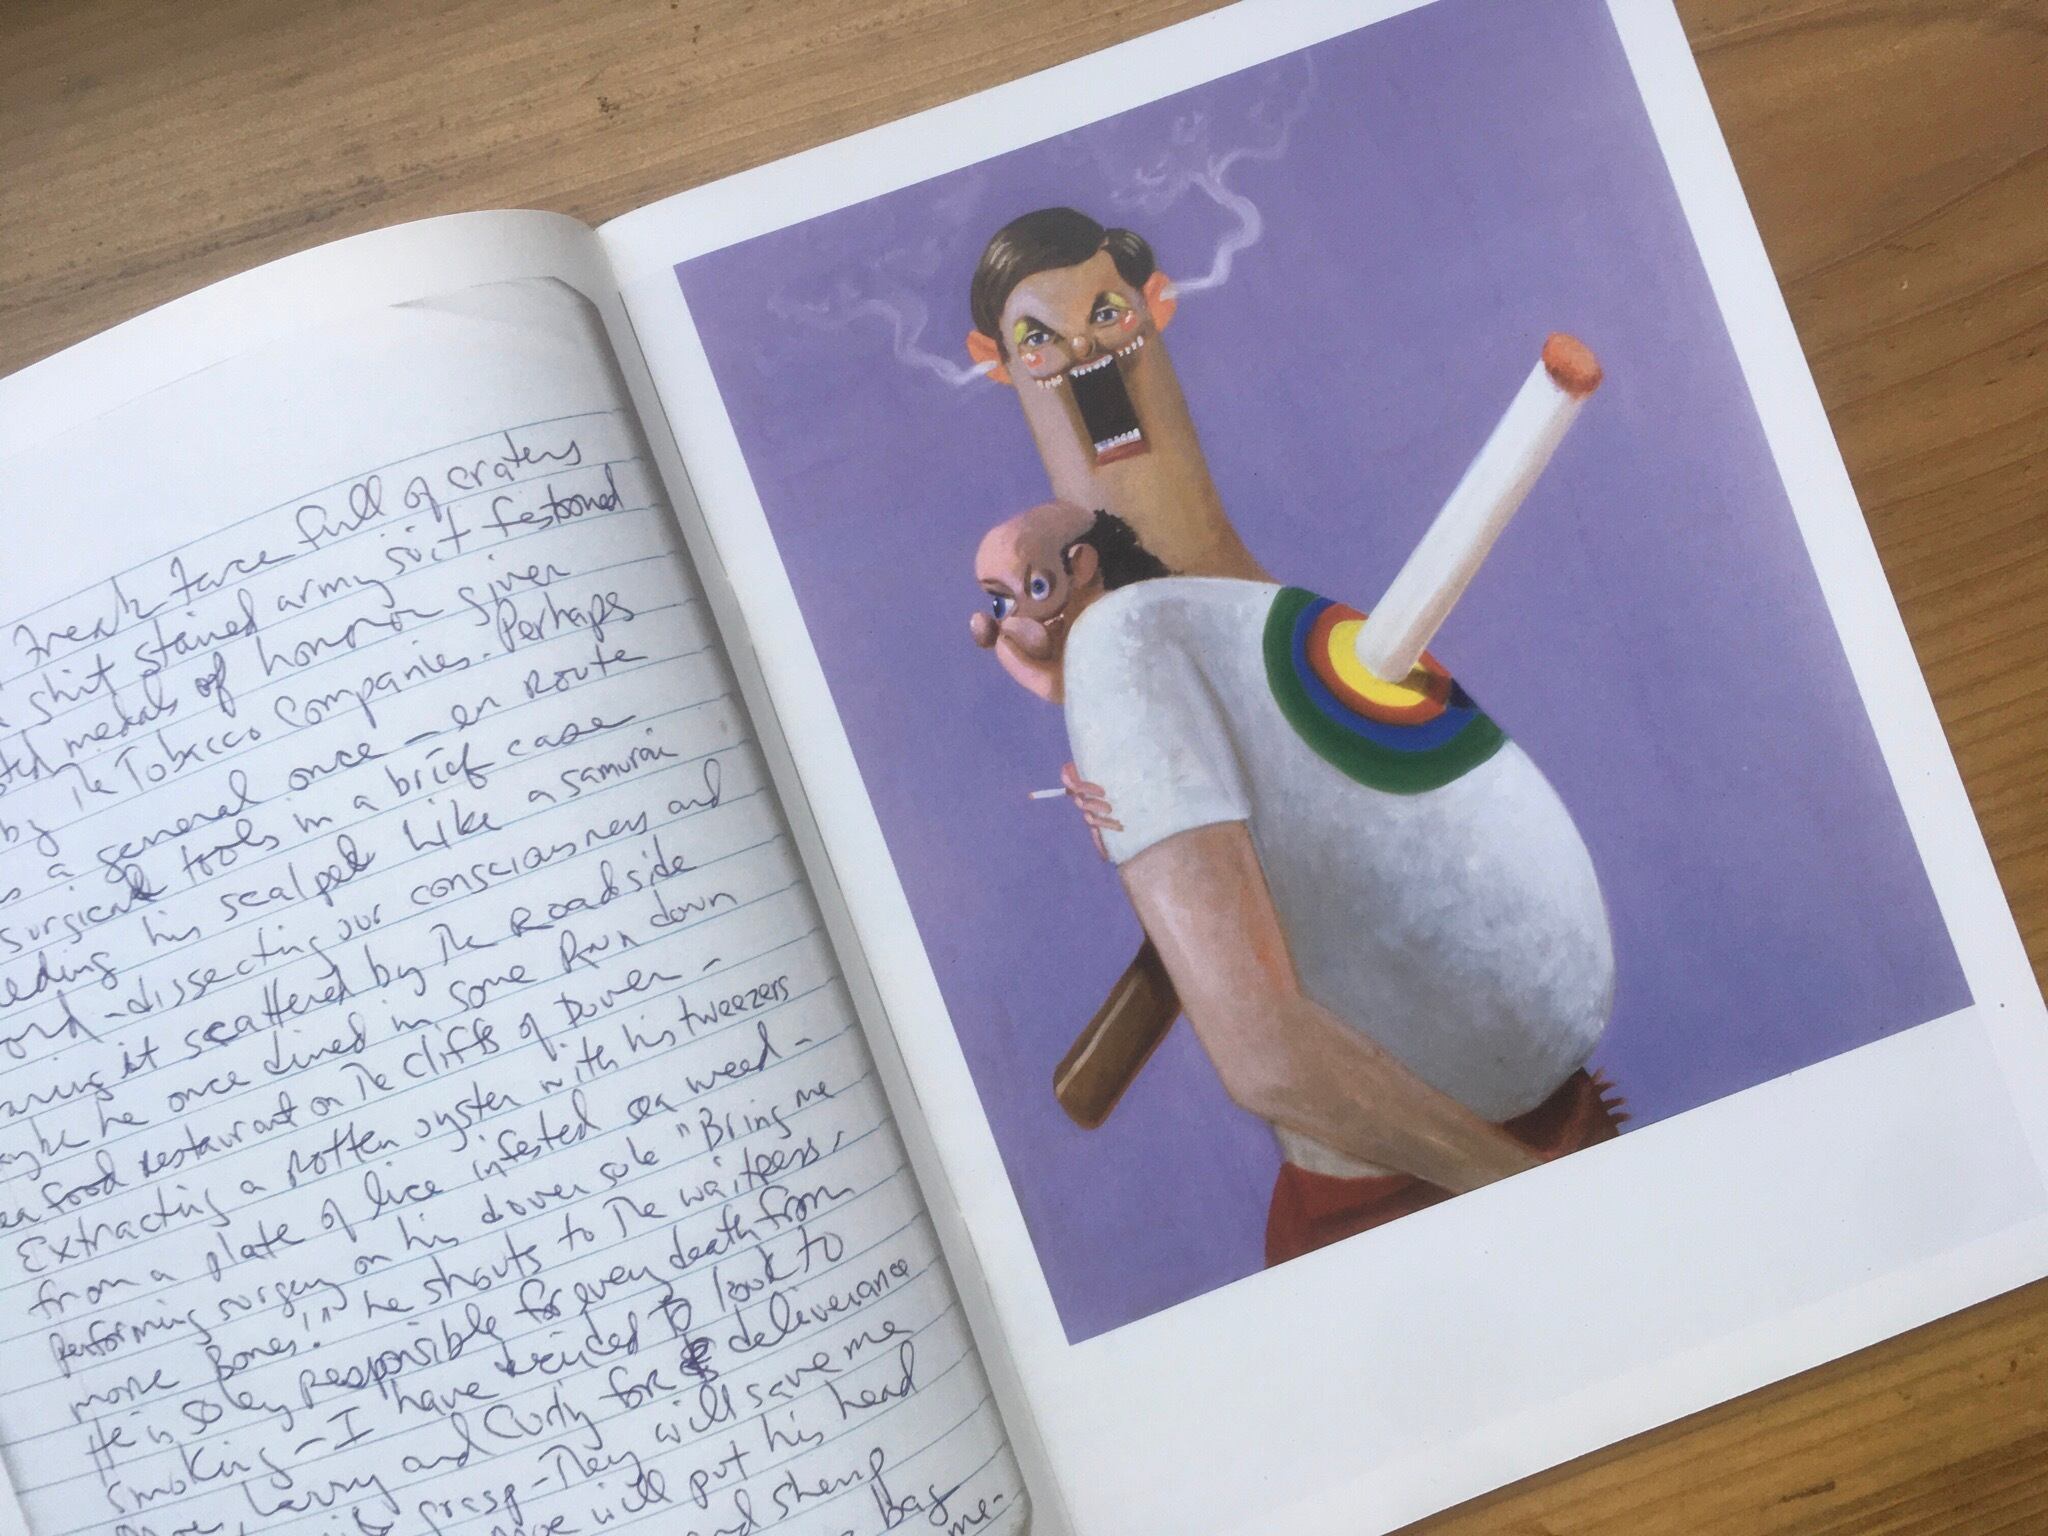 Freak face full of craters
shit stained army suit festooned
medals of honnor given
by the Tobacco Companies. Perhaps
a general once – en Route
surgical tools in a brief case
his scalpel like a samurai
– dissecting our consciousness and
it scattered by the Roadside
he once dined in some Run down
food restaurant on the cliffs of Dover –
Extracting a rotten oyster with his tweezers
from a plate of lice infested sea weed –
performing surgery on his dover sole "Bring me
more Bones!" he shouts to the waitress,
He is soley responsible for every death from
smoking – I have decided to look to
Larry and Curly for deliverance
grasp – They will save me
will put his head
and shemp
bag
me –